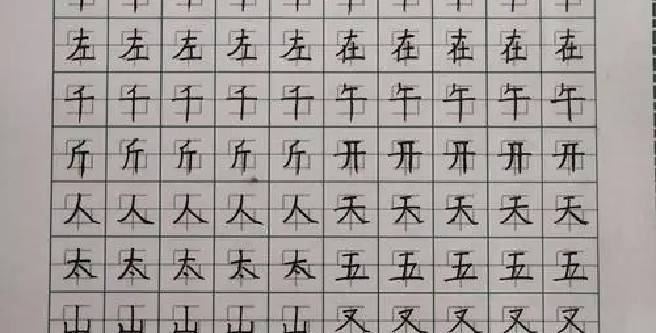 左左左左左在在在在在
千千千千千午午午午午
斤斤斤斤斤开开开开开
人人人人人天天天天天
太太太太太五五五五五
山山山山山叉叉叉叉叉